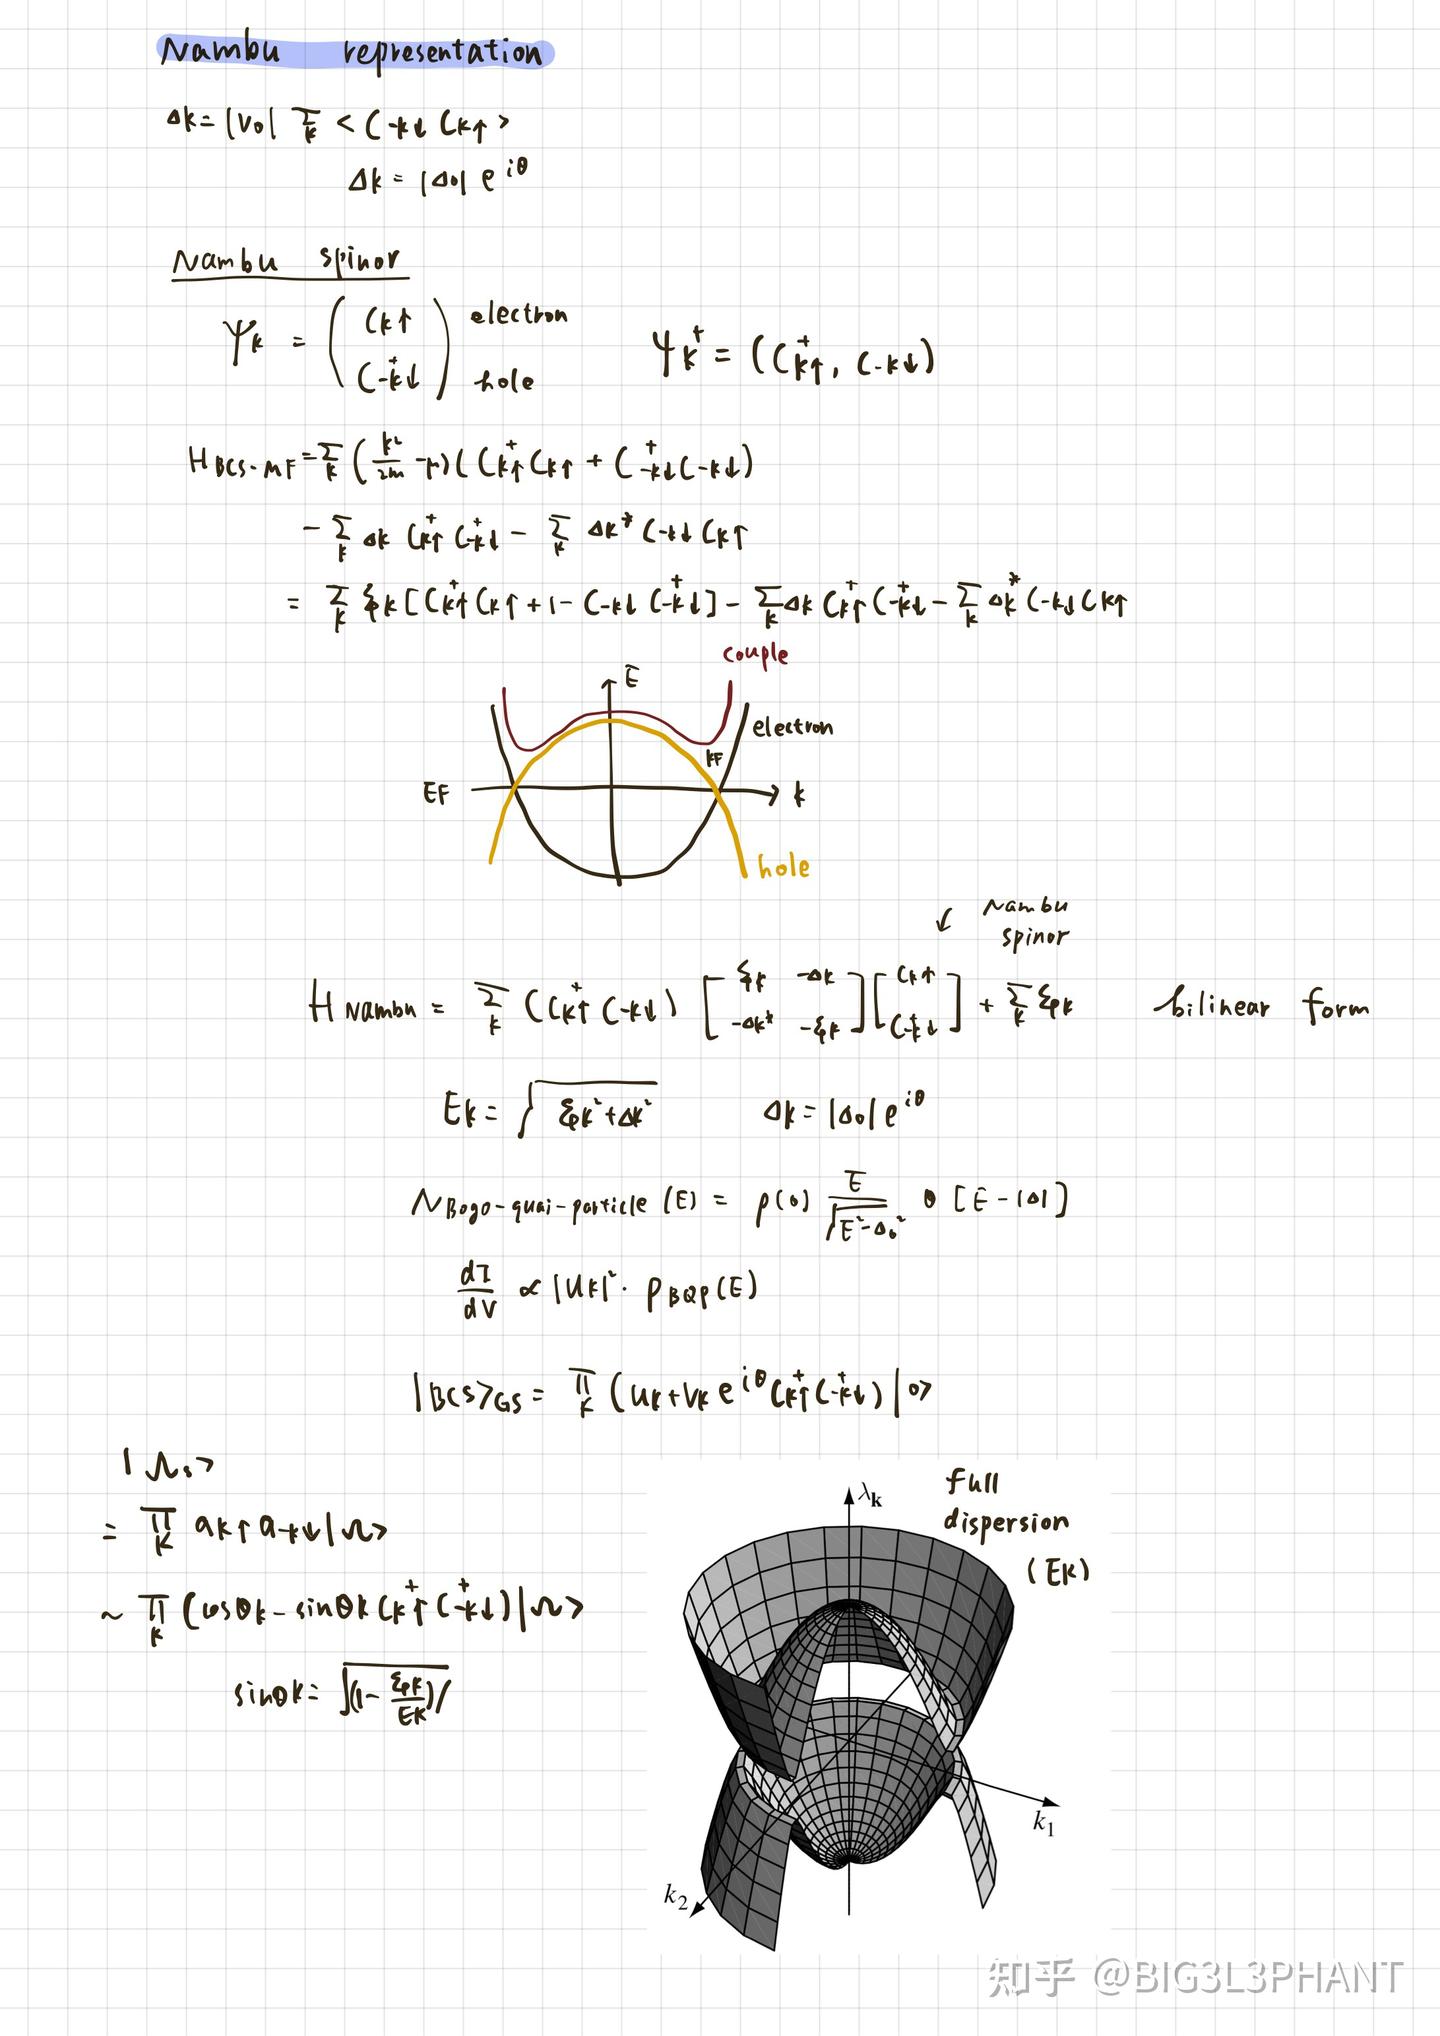 Nambu representation
Δk = |V0| Σ_k <C-k↓ Ck↑>
Δk = |Δ0| e^{iθ}
Nambu spinor
Ψk = ( Ck↑ electron
C†-k↓ ) hole
Ψk† = (C†k↑, C-k↓)
H BCS-MF = Σ_k (k²/2m - μ)(C†k↑ Ck↑ + C†-k↓ C-k↓)
- Σ_k Δk C†k↑ C†-k↓ - Σ_k Δk* C-k↓ Ck↑
= Σ_k ξk [C†k↑ Ck↑ + 1 - C-k↓ C†-k↓] - Σ_k Δk C†k↑ C†-k↓ - Σ_k Δk* C-k↓ Ck↑
couple
E
electron
kF
EF
k
hole
↙ Nambu
spinor
H Nambu = Σ_k (C†k↑ C-k↓) [ξk -Δk; -Δk* -ξk] [Ck↑; C†-k↓] + Σ_k ξk bilinear form
Ek = √(ξk² + Δk²) Δk = |Δ0| e^{iθ}
N Bogo-quai-particle (E) = ρ(0) E/√(E²-Δ0²) θ [E - |Δ|]
dI/dV ∝ |Uk|² · ρ BQP (E)
|BCS>GS = Π_k (uk + vk e^{iθ} C†k↑ C†-k↓) |0>
|Ωs>
= Π_k ak↑ a-k↓ |Ω>
~ Π_k (cosθk - sinθk C†k↑ C†-k↓) |Ω>
sinθk = √((1 - ξk/Ek)/
full
dispersion
(Ek)
λk
k1
k2
知乎 @BIG3L3PHANT